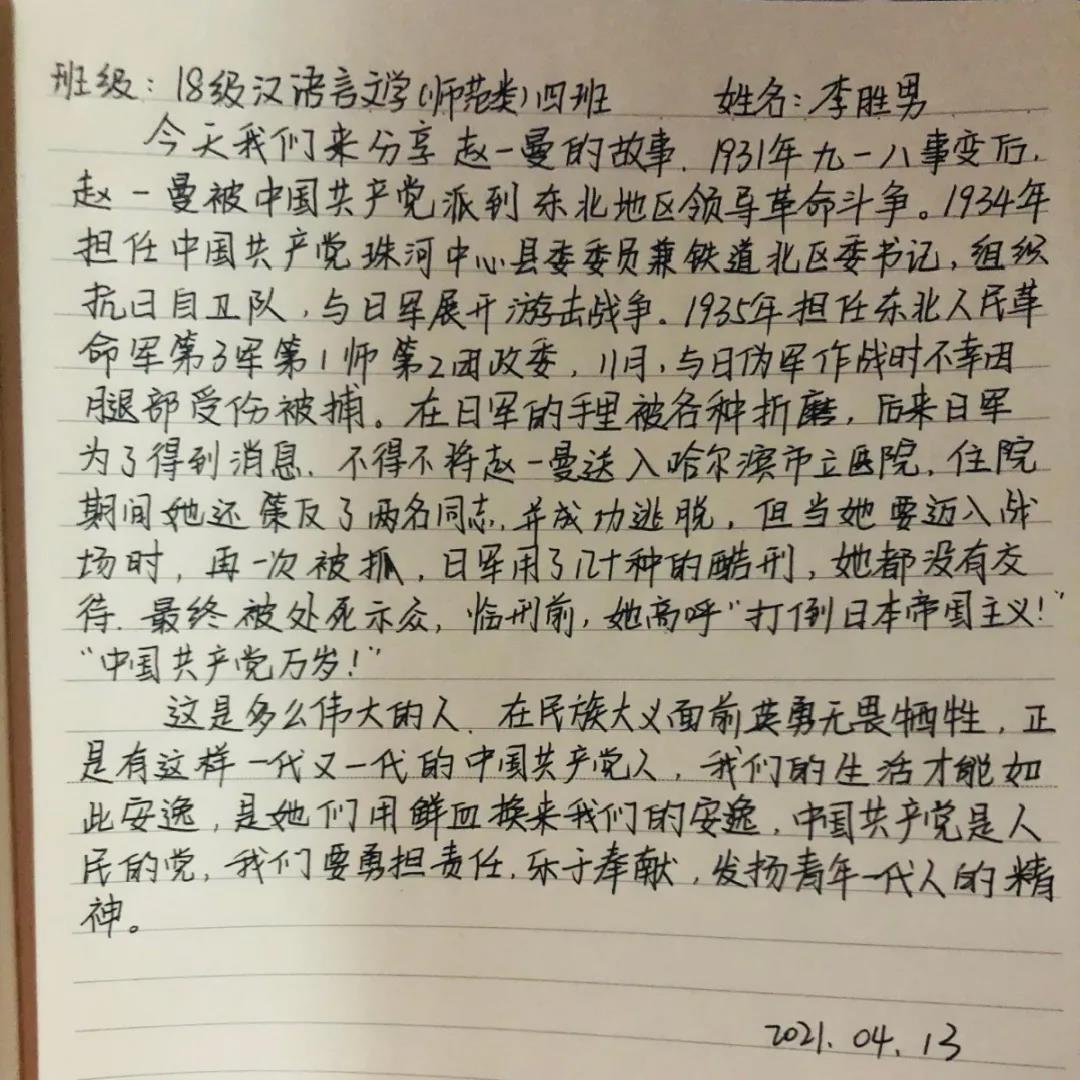 班级：18级汉语言文学(师范类)四班 姓名：李胜男
今天我们来分享赵一曼的故事．1931年九一八事变后，
赵一曼被中国共产党派到东北地区领导革命斗争。1934年
担任中国共产党珠河中心县委委员兼铁道北区委书记，组织
抗日自卫队，与日军展开游击战争。1935年担任东北人民革
命军第3军第1师第2团政委，11月，与日伪军作战时不幸因
腿部受伤被捕。在日军的手里被各种折磨，后来日军
为了得到消息．不得不将赵一曼送入哈尔滨市立医院，住院
期间她还策反了两名同志，并成功逃脱，但当她要迈入战
场时，再一次被抓，日军用了几十种的酷刑，她都没有交
待．最终被处死示众，临刑前，她高呼“打倒日本帝国主义！”
“中国共产党万岁！”
这是多么伟大的人．在民族大义面前英勇无畏牺牲，正
是有这样一代又一代的中国共产党人，我们的生活才能如
此安逸，是她们用鲜血换来我们的安逸，中国共产党是人
民的党，我们要勇担责任，乐于奉献，发扬青年一代人的精
神。
2021.04.13